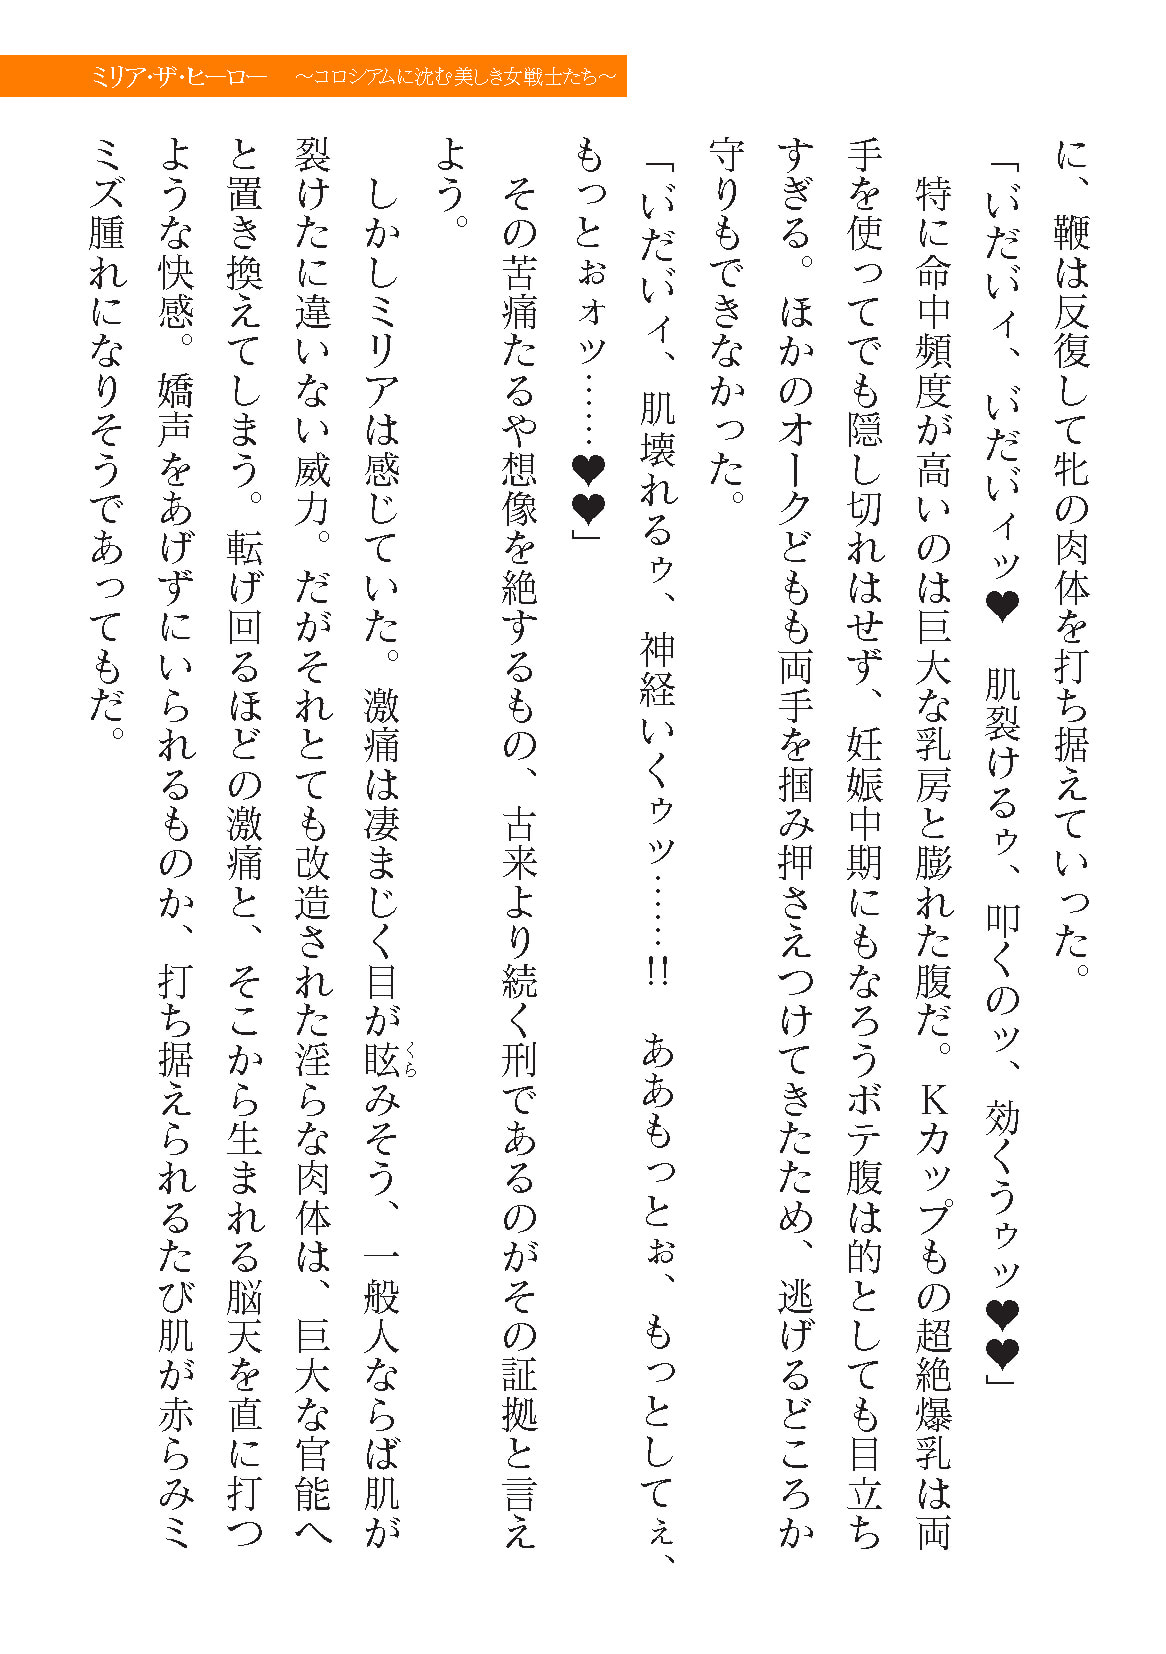 ミリア・ザ・ヒーロー　～コロシアムに沈む美しき女戦士たち～
に、鞭は反復して牝の肉体を打ち据えていった。
「い゛だい゛ィ、い゛だい゛ィッ♥　肌裂けるゥ、叩くのッ、効くうゥッ♥♥」
　特に命中頻度が高いのは巨大な乳房と膨れた腹だ。Kカップもの超絶爆乳は両
手を使ってでも隠し切れはせず、妊娠中期にもなろうボテ腹は的としても目立ち
すぎる。ほかのオークどもも両手を掴み押さえつけてきたため、逃げるどころか
守りもできなかった。
「い゛だい゛ィ、肌壊れるゥ、神経いくゥッ……!!　ああもっとぉ、もっとしてぇ、
もっとぉォッ……♥♥」
　その苦痛たるや想像を絶するもの、古来より続く刑であるのがその証拠と言え
よう。
　しかしミリアは感じていた。激痛は凄まじく目が眩みそう、一般人ならば肌が
裂けたに違いない威力。だがそれとても改造された淫らな肉体は、巨大な官能へ
と置き換えてしまう。転げ回るほどの激痛と、そこから生まれる脳天を直に打つ
ような快感。嬌声をあげずにいられるものか、打ち据えられるたび肌が赤らみミ
ミズ腫れになりそうであってもだ。